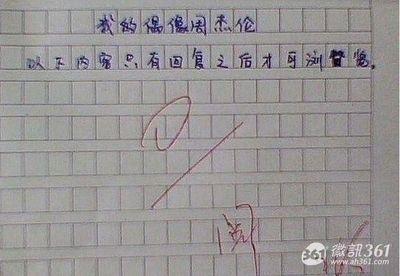 我的偶像周杰伦
以下内容只有回复之后才可浏览。
阅
361 徽訊361
www.ah361.com